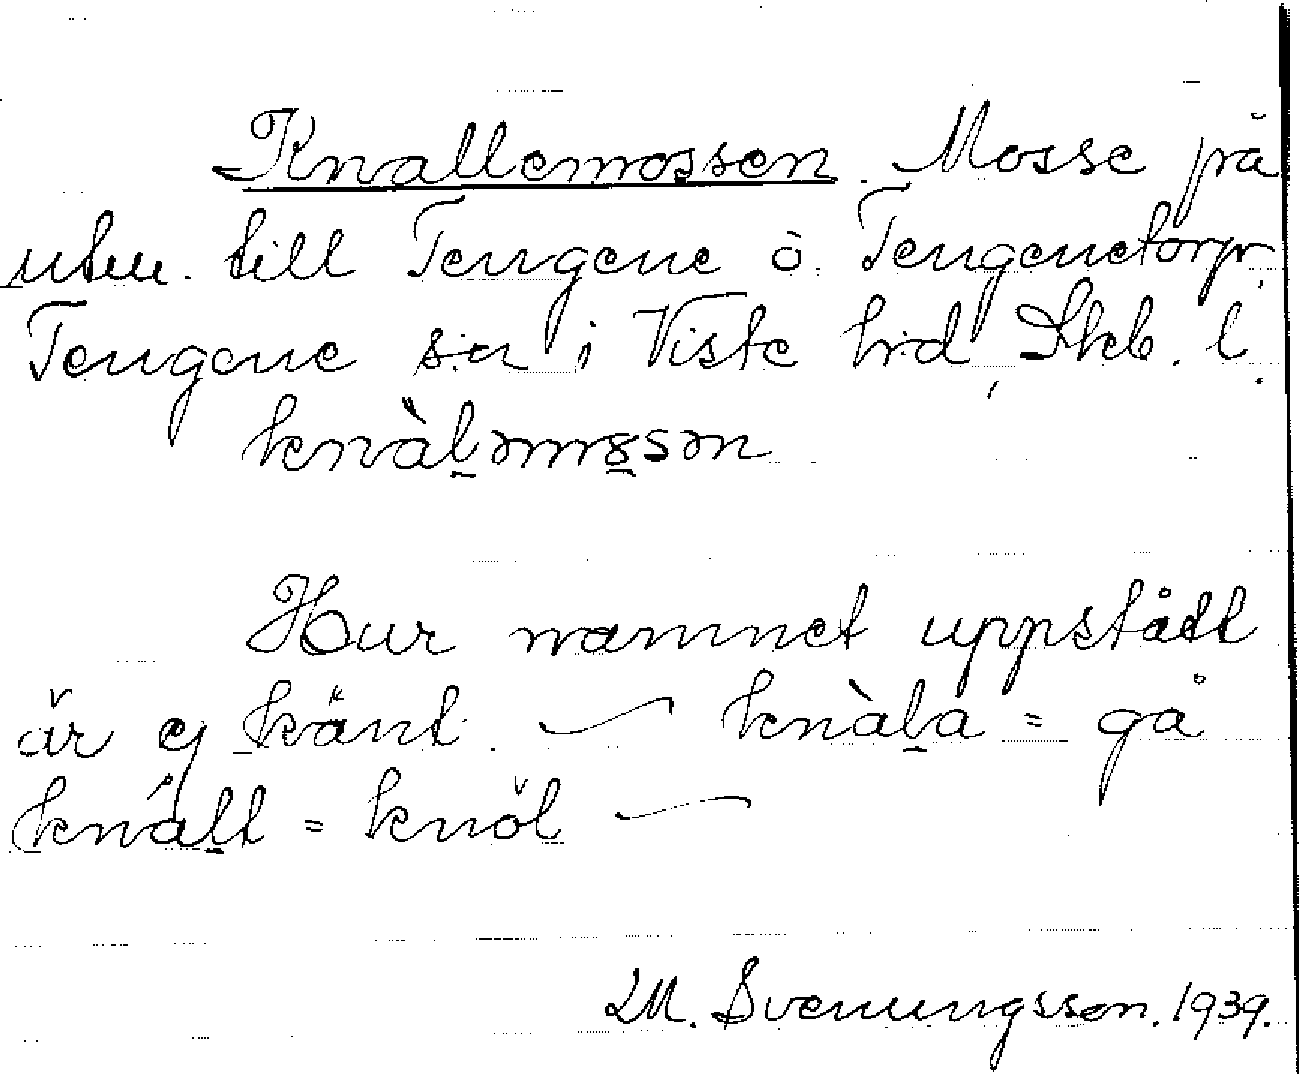 Knallemossen. Mosse på
utm. till Tengene o. Tengenetorp,
Tengene sn i Viste hrd, Skb. l.
knàl̠əmo̠sən
Hur namnet uppstått
är ej känt. — knàl̠a = gå
knál̠t = knöl —
M. Svenungsson. 1939.